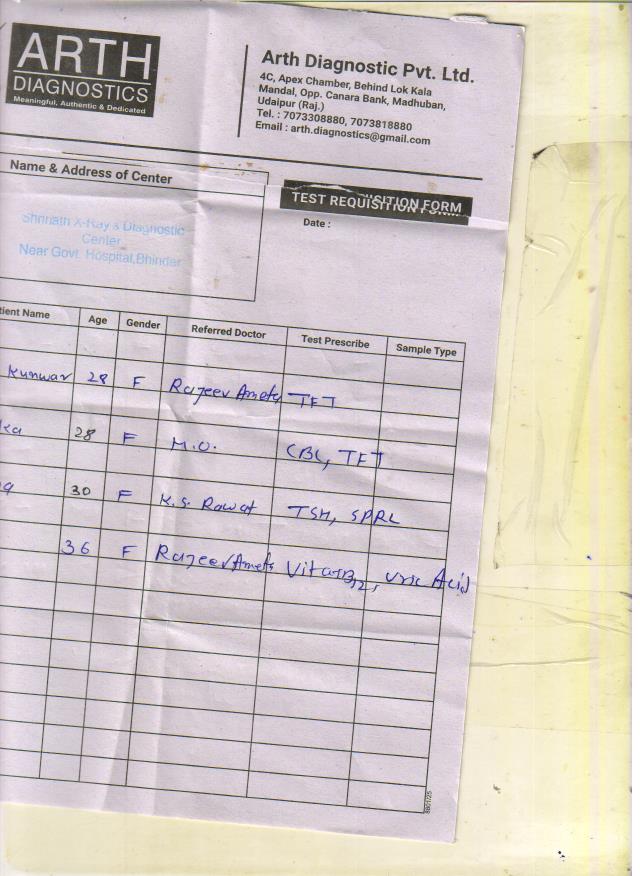 ARTH
DIAGNOSTICS
Meaningful, Authentic & Dedicated
Arth Diagnostic Pvt. Ltd.
4C, Apex Chamber, Behind Lok Kala
Mandal, Opp. Canara Bank, Madhuban,
Udaipur (Raj.)
Tel. : 7073308880, 7073818880
Email : arth.diagnostics@gmail.com
Name & Address of Center
TEST REQUISITION FORM
Date :
Shrinath X-Ray & Diagnostic
Center
Near Govt. Hospital,Bhinder
tient Name Age Gender Referred Doctor Test Prescribe Sample Type
Kunwar 28 F Rajeev Ameta TFT
ka 28 F M.O. CBC, TFT
30 F K.S. Rawat TSH, SPRL
36 F Rajeev Ameta Vitamin B12, Uric Acid
8601/25